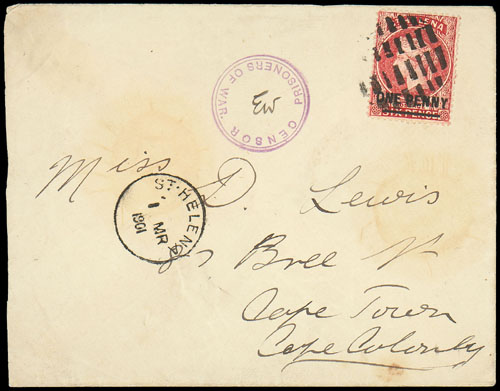 ST. HELENA
ONE PENNY
SIX PENCE
CENSOR
PRISONERS OF WAR.
Miss D. Lewis
ST. HELENA
1
MR
1901
Bree St
Cape Town
Cape Colony